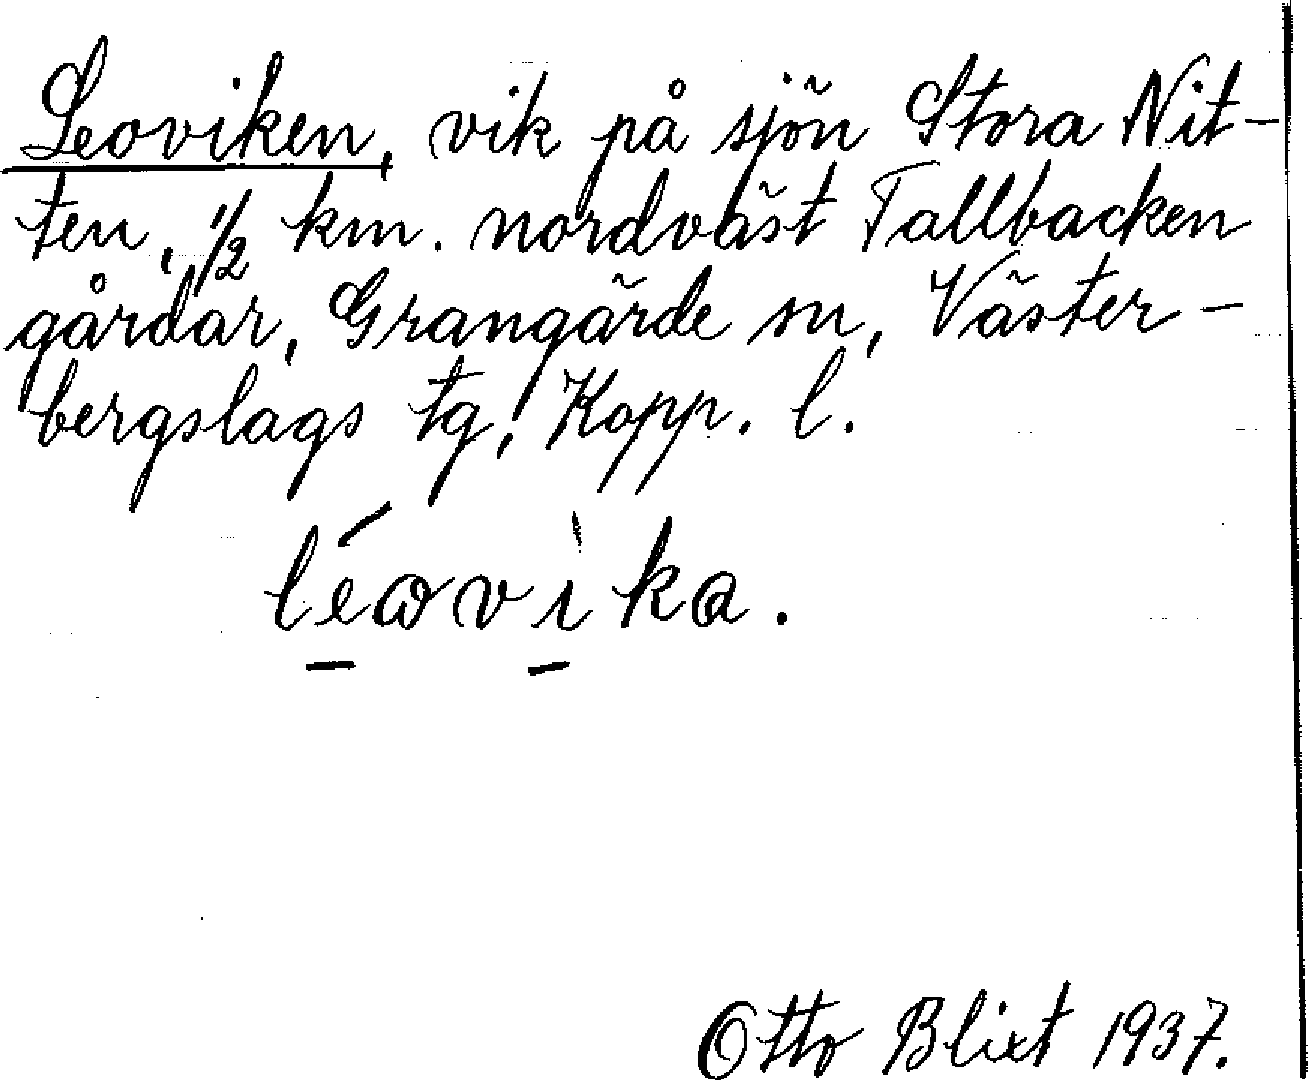 Leoviken, vik på sjön Stora Nit-
ten, 1/2 km. nordväst Tallbacken
gårdar, Grangärde sn, Väster-
bergslags tg, Kopp. l.
léωvìka.
Otto Blixt 1937.